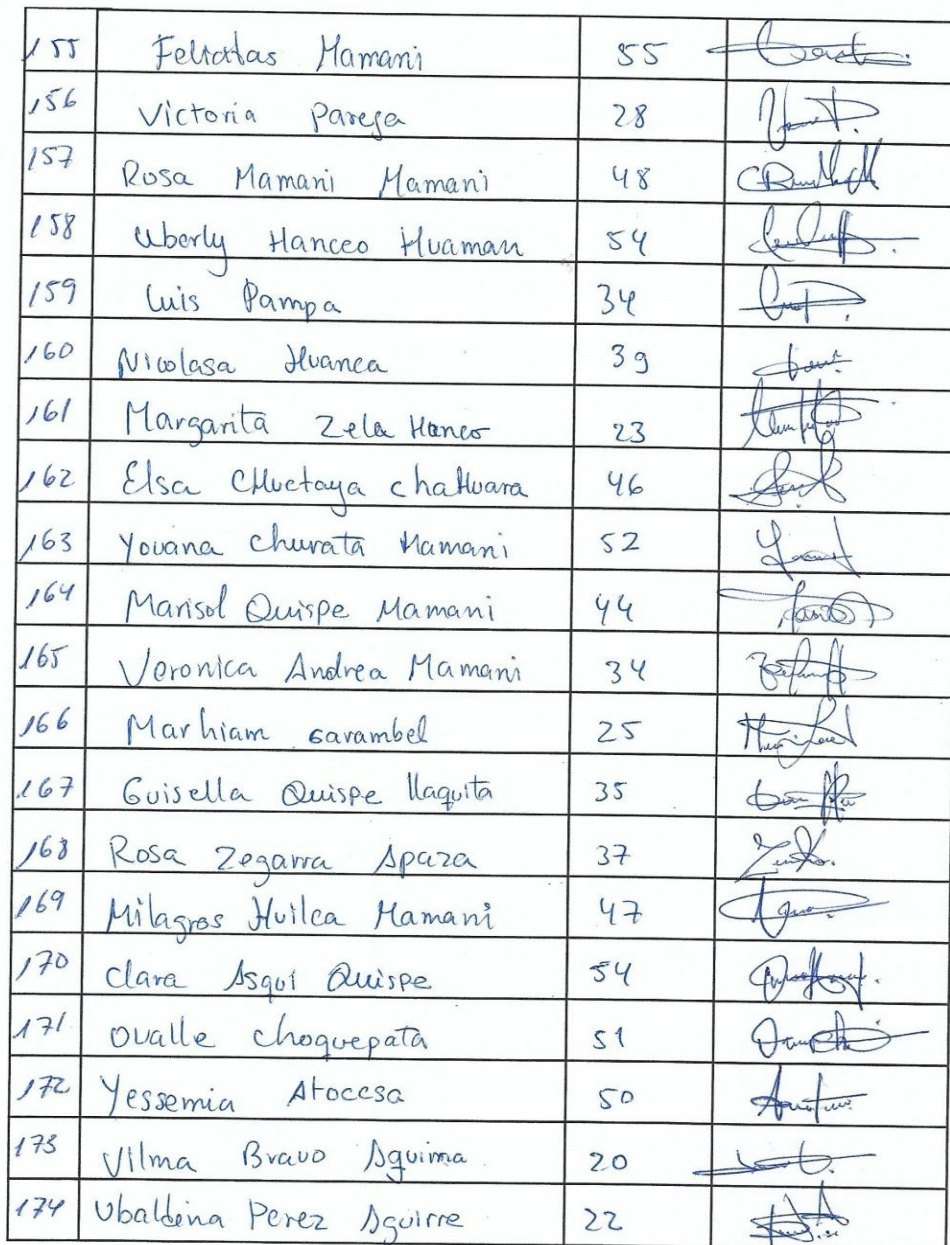 155 Felicitas Mamani 55
156 Victoria Pareja 28
157 Rosa Mamani Mamani 48
158 Uberly Hancco Huaman 54
159 Luis Pampa 34
160 Nicolasa Huanca 39
161 Margarita Zela Hanco 23
162 Elsa CHuctaya chaHuara 46
163 Yovana Churata Mamani 52
164 Marisol Quispe Mamani 44
165 Veronica Andrea Mamani 34
166 Marhiam Garambel 25
167 Guisella Quispe llaquita 35
168 Rosa Zegarra Apaza 37
169 Milagros Huilca Mamani 47
170 Clara Asqui Quispe 54
171 Ovalle Choquepata 51
172 Yessemia Atoccsa 50
173 Vilma Bravo Aguima 20
174 Ubaldina Perez Aguirre 22